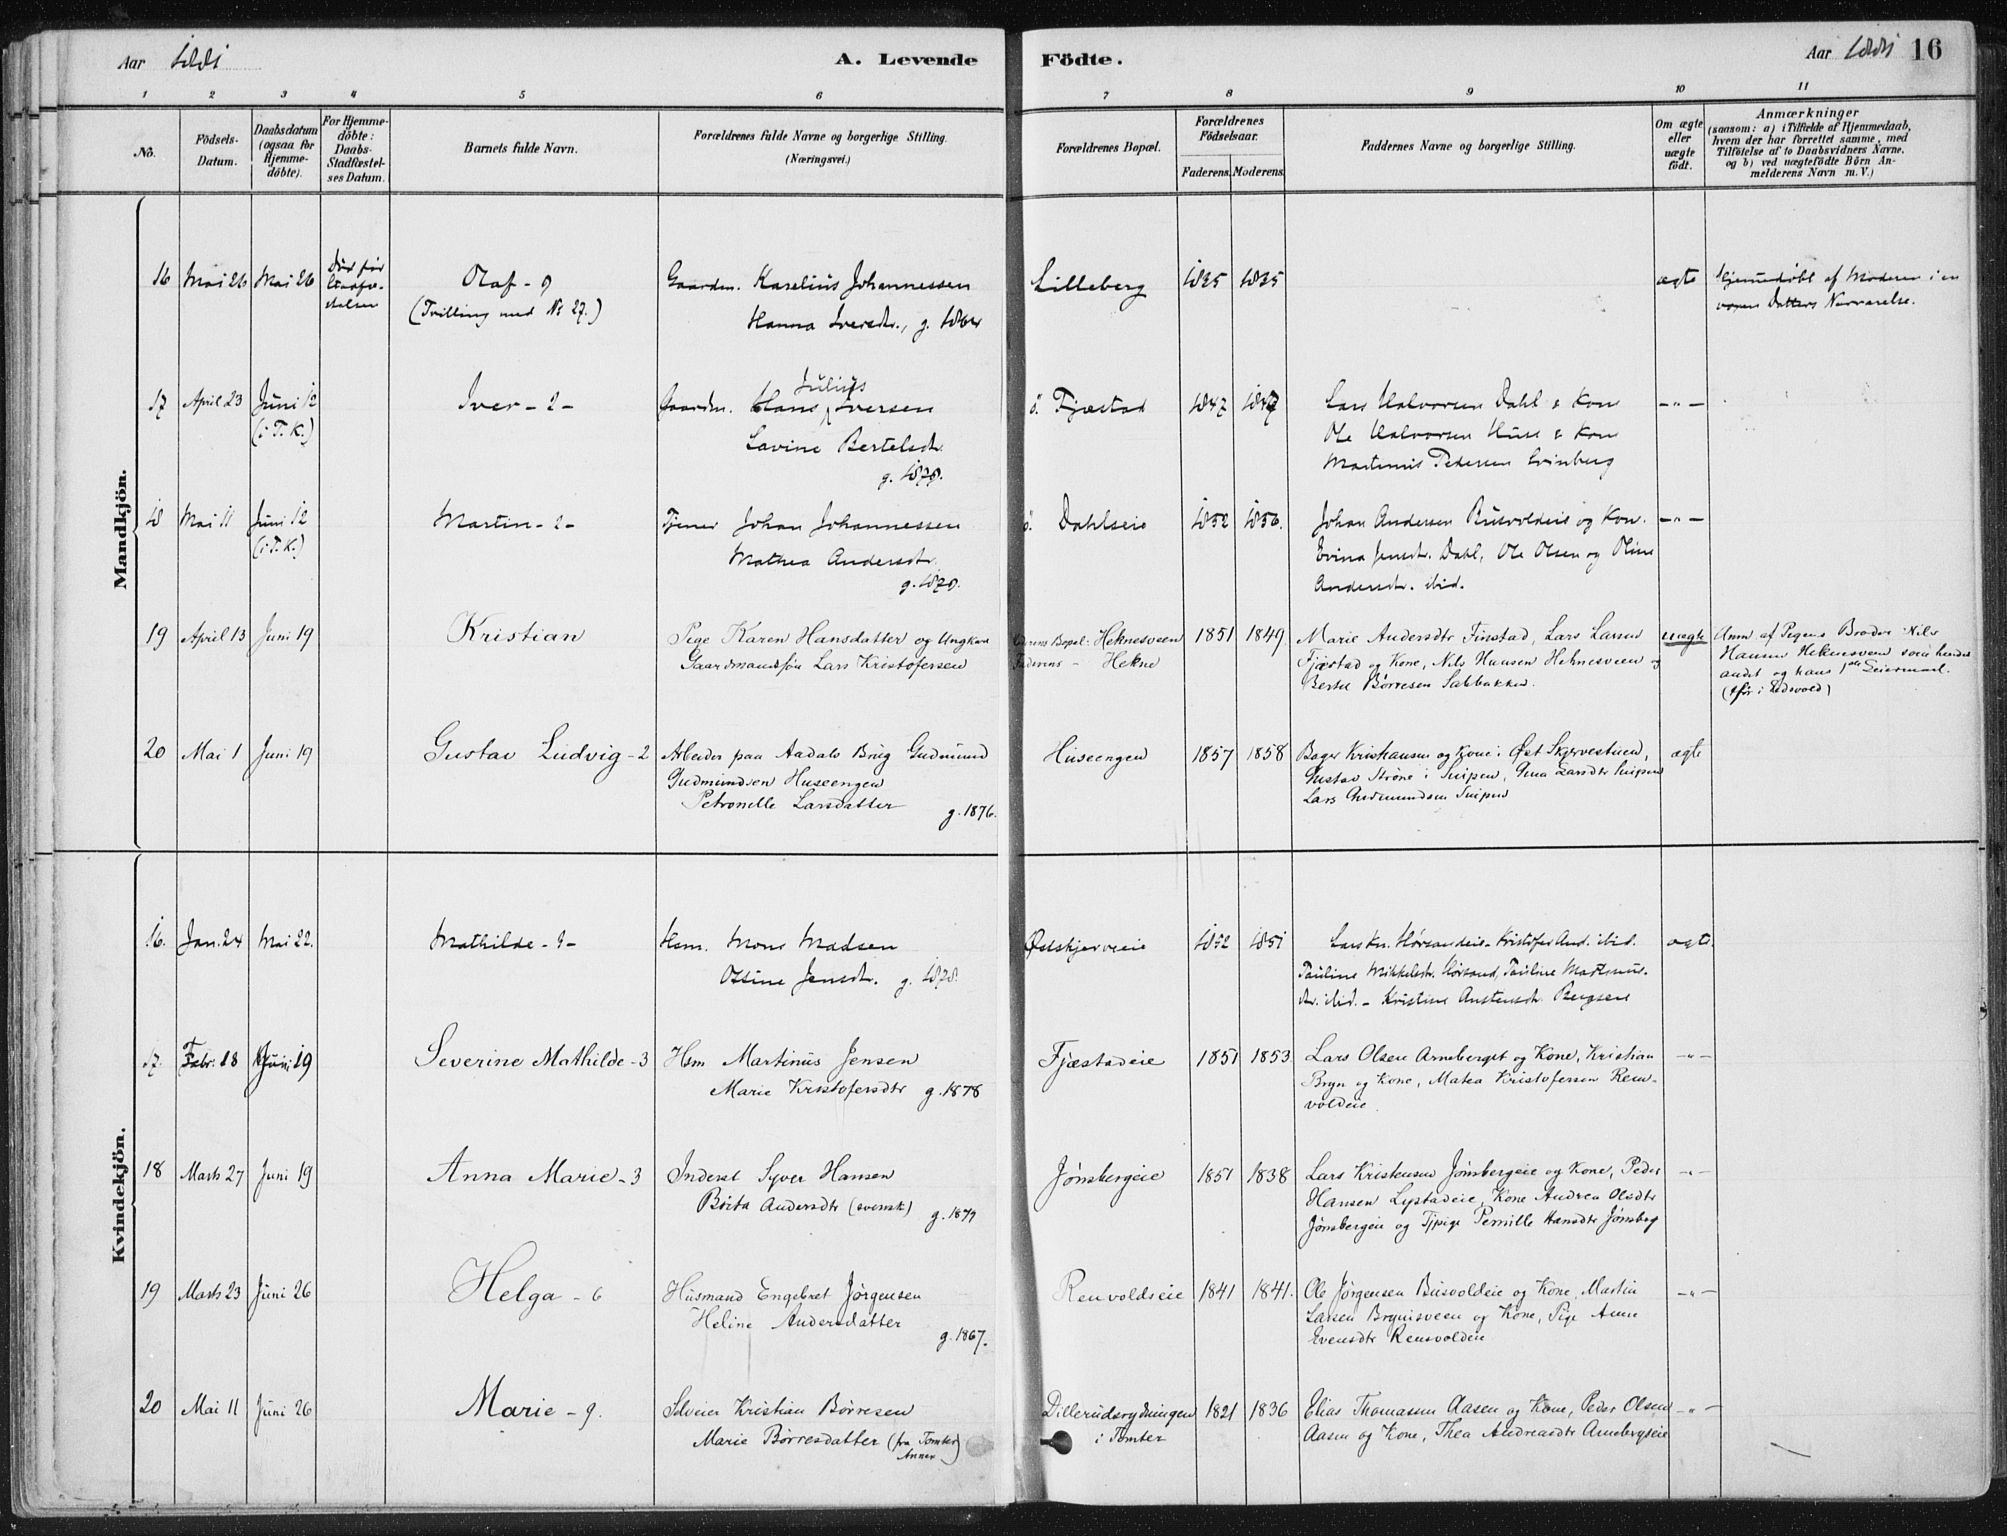 Aar 1881
A. Levende Födte.
Aar 1881
16
1 2 3 4 5 6 7 8 9 10 11
No.
Födsels-Datum.
Daabsdatum (ogsaa for Hjemme-döbte).
For Hjemme-döbte: Daabs-Stadfæstel-ses Datum.
Barnets fulde Navn.
Forældrenes fulde Navne og borgerlige Stilling. (Næringsvei.)
Forældrenes Bopæl.
Forældrenes Födselsaar.
Faderens. Moderens.
Faddernes Navne og borgerlige Stilling.
Om ægte eller uægte födt.
Anmærkninger
(saasom: a) i Tilfælde af Hjemmedaab,
hvem der har forrettet samme, med
Tilföielse af to Daabsvidners Navne.
og b) ved uægtefödte Börn An-
melderens Navn m. V.)
Mandkjön.
16 Mai 26 Mai 26 Død før Stadfæ-stelsen
Olaf - 9
(Tvilling med No 27.)
Gaardm. Karelius Johannessen
Hanna Iversdr., g. 1864
Lilleberg 1835 1835
ægte
Hjemmedøbt af Moderen i en
voxen Datters Nærværelse.
17 April 23 Juni 12
(i T. K.)
Iver - 2 -
Gaardm. Hans Julius Iversen
Lavine Bertelsdr.
g. 1878.
ö. Fjæstad 1847 1847
Lars Halvorsen Dahl & Kone
Ole Halvorsen Huse & Kone
Martinus Pedersen Evinberg
- " -
18 Mai 11 Juni 12
(i T. K.)
Martin - 2 -
Tjener Johan Johannessen
Mathea Andersdr.
g. 1878.
ö. Dahlseie 1852 1856.
Johan Andersen Busvoldeie og Kone.
Evina Jensdr. Dahl, Ole Olsen og Oline
Andersdr. ibid.
- " -
19 April 13 Juni 19
Kristian
Pige Karen Hansdatter og Ungkar
Gaardmandssøn Lars Kristofersen
Moderens Bopæl: Heknesveen
Faderens - Hekne
1851 1849.
Marie Andersdtr Finstad, Lars Larsen
Fjæstad og Kone, Nils Hansen Heknesveen og
Bertel Børresen Sabbakken.
uægte
Anm. af Pigens Broder Nils
Hansen Heknesveen som hendes
andet og hans 1ste Leiermaal.
20 Mai 1 Juni 19
Gustav Ludvig - 2
Arbeider paa Aadals Brug Gudmund
Gudmundsen Huseengen
Petronelle Larsdatter
g. 1876.
Huseengen 1857 1858
Bager Kristiansen og Kone i Øst Skjervestuen,
Gustav Strøne i Snipen, Gina Larsdtr Snipen
Lars Gudmundsen Snipen
ægte
Kvindekjön.
16. Jan. 24 Mai 22.
Mathilde - 2 -
Hsm. Mons Madsen
Ossine Jensdr. g. 1878.
Østskjerveeie 1852 1851
Lars Kr. Hørsandeie - Kristofer And. ibid.
Pauline Mikkelsdr. Hørsand, Pauline Martinus-
dr. ibid. - Kristine Austensdr. Bergseie
ægte.
17. Febr. 18 Juni 19
Severine Mathilde - 3
Hsm Martinus Jensen
Marie Kristofersdtr g. 1878
Fjæstadeie 1851 1853
Lars Olsen Arneberget og Kone, Kristian
Bryn og Kone, Matea Kristofersen Ren-
voldeie.
- " -
18 Marts 27 Juni 19
Anna Marie - 3
Inderst Syver Hansen
Børta Andersdtr (svensk) g. 1879
Jønsbergeie 1851 1838
Lars Kristensen Jønsbergeie og Kone, Peder
Hansen Lystadeie, Kone Andrea Olsdtr
Jønsbergeie og Tjpige Pernille Hansdtr Jønsberg
- " -
19 Marts 23 Juni 26
Helga - 6
Husmand Engebret Jørgensen
Heline Andersdatter
g. 1867.
Renvoldseie 1841 1841.
Ole Jørgensen Busvoldeie og Kone, Martin
Larsen Brynisveen og Kone, Pige Anne
Evensdtr Rensvoldeie
- " -
20 Mai 11 Juni 26
Marie - 9.
Selveier Kristian Børresen
Marie Børresdatter (fra Tomter Annex)
Dillerudsrydningen
i Tomter
1821 1836
Elias Thomassen Aasen og Kone, Peder Olsen
Aasen og Kone, Thea Andreasdtr Arnebergseie
- " -